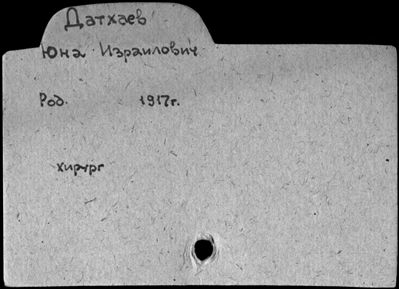 Датхаев
Юна Израилович
Род. 1917г.
хирург